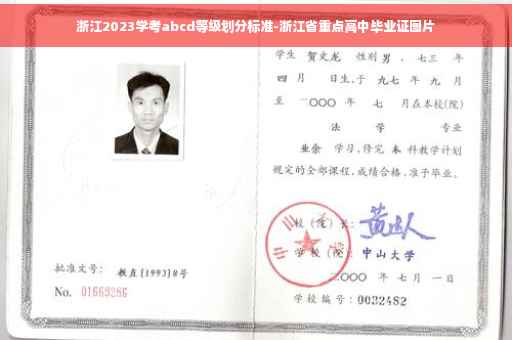 浙江2023学考abcd等级划分标准-浙江省重点高中毕业证图片
学生 贺文龙 性别 男 、七三 年
四 月 日生,于 九七 年 九 月
至 二〇〇〇 年 七 月在本校(院)
法 学 专业
业余 学习,修完 本 科教学计划
规定的全部课程,成绩合格,准予毕业。
校 (院) 长:
学 校 (院): 中山大学
二〇〇〇 年 七 月 一 日
学校编号: 0032482
批准文号: 教直[1993]8号
No. 01669286